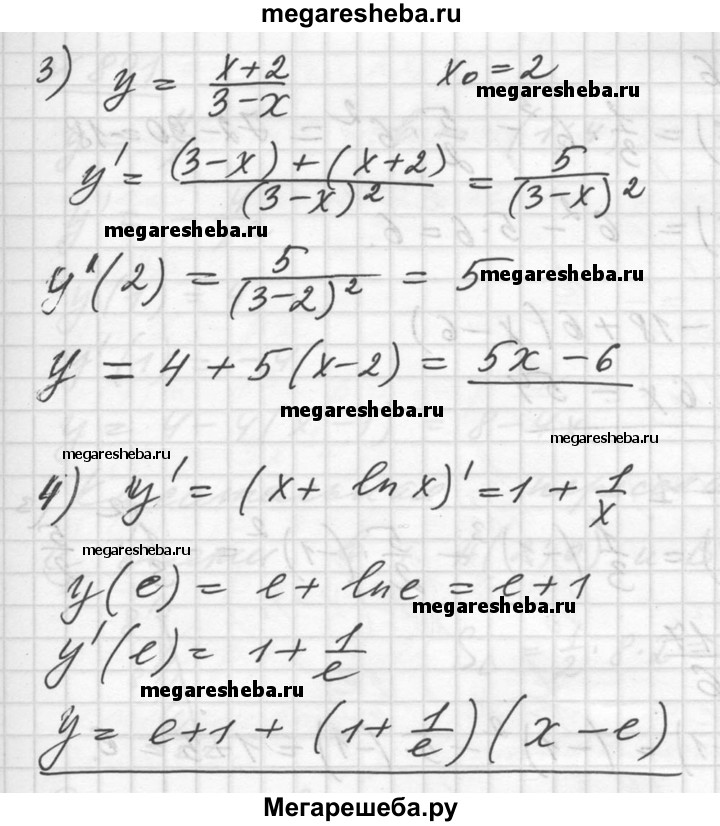 megaresheba.ru
3) y = (x+2)/(3-x) x₀ = 2
megaresheba.ru
y' = ((3-x) + (x+2))/(3-x)² = 5/(3-x)²
megaresheba.ru
y'(2) = 5/(3-2)² = 5
megaresheba.ru
y = 4 + 5(x-2) = 5x - 6
megaresheba.ru
megaresheba.ru
megaresheba.ru
4) y' = (x + ln x)' = 1 + 1/x
megaresheba.ru
y(e) = e + ln e = e + 1
megaresheba.ru
y'(e) = 1 + 1/e
megaresheba.ru
y = e+1 + (1 + 1/e)(x - e)
Мегарешеба.ру